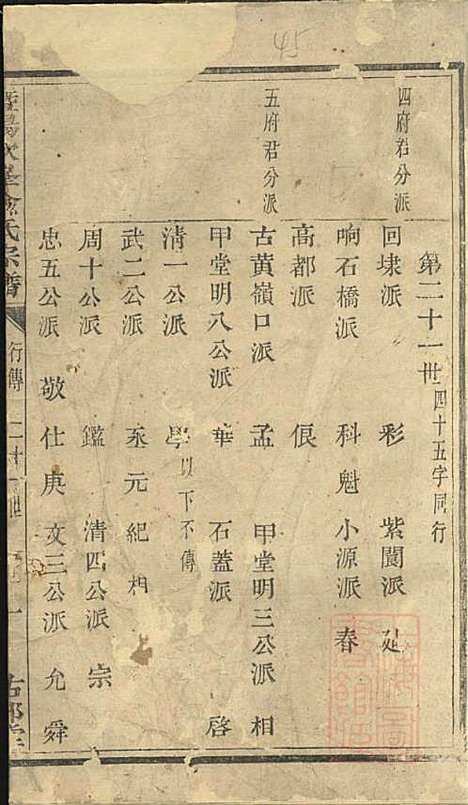 45
第二十一卅四十五字同行
四府君分派
回埭派 彩 紫閬派
响石橋派 科魁 小源派 春
高都派 俍
五府君分派
古黃嶺口派 孟 甲堂明三公派 相
甲堂明八公派 華 石蓋派 啓
清一公派 學 以下不傳
武二公派 元紀相
周十公派 鑑 清四公派 宗
忠五公派 敬仕庚 文三公派 允舜
氏宗譜 行傳 二十一世 一